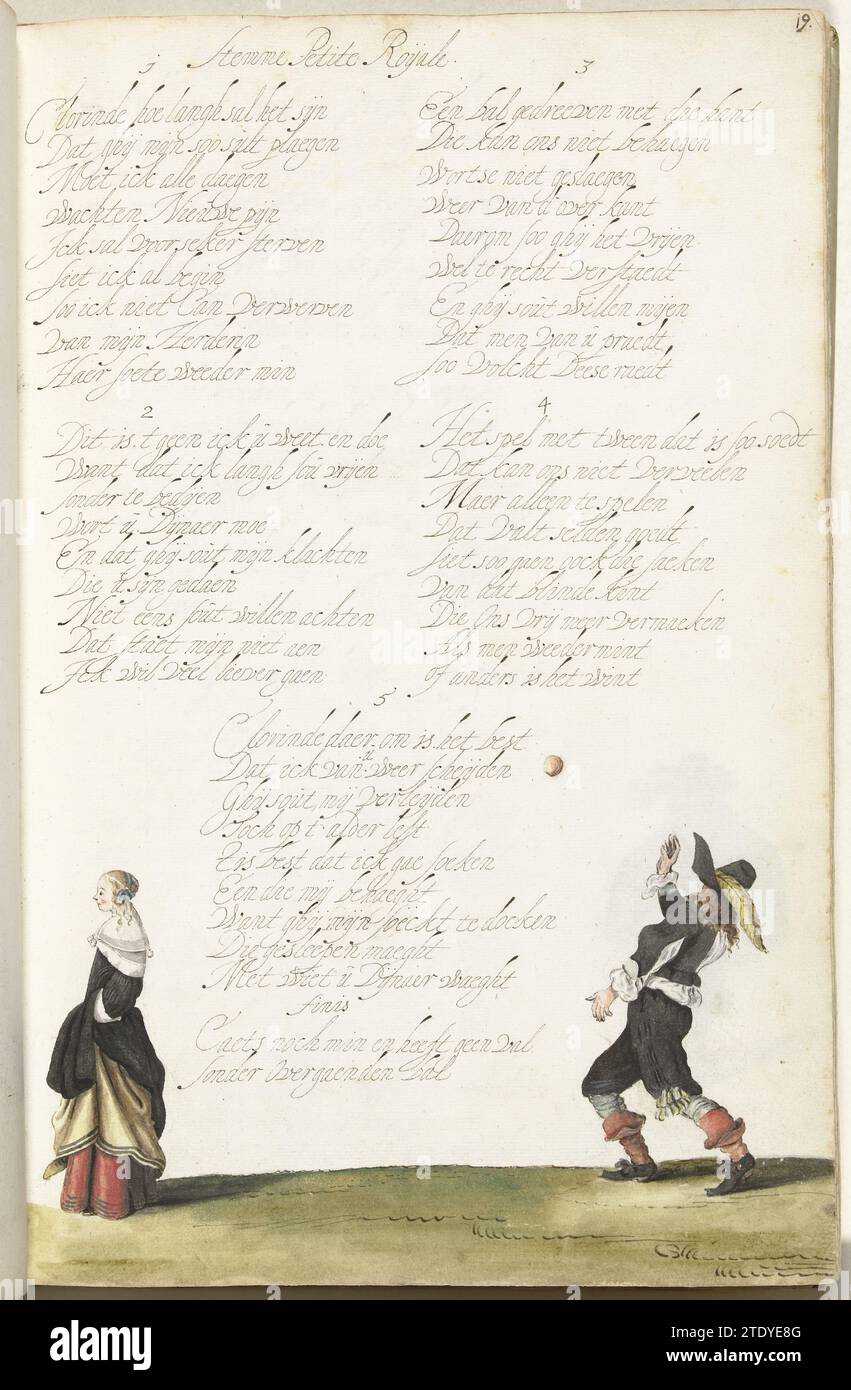 19.
Stemme Petite Royale.
1
Clorinde hoe langh sal het sijn
Dat ghij mijn soo sult plaegen
Moet ick alle daegen
wachten Nieuwe pijn
Ick sal voorseker sterven
siet ick al begin
soo ick niet Can verwerven
van mijn Herderin
Haer soete weeder min
2
Dit is t geen ick ú weet en doe
Want dat ick langh soú vrijen
sonder te bedijen
Wort ú Dijnaer moe
En dat ghij soút mijn klachten
Die ú sijn gedaen
Niet eens soút willen achten
Dat staet mijn niet aen
Ick wil veel liever gaen
3
Een bal gedreeven met die hant
Die kan ons niet behaegen
wortse niet geslaegen
weer van d over kant
Daerom soo ghij het vrijen
wel te recht verstaedt
En ghij soút willen mijen
Dat men van ú praedt
soo volcht Deese raedt
4
Het spel met tween dat is soo soedt
Dat kan ons niet verveelen
Maer alleen te spelen
Dat valt selden goedt
siet soo gaen oock die saeken
van dat blinde kint
Die Ons vrij meer vermaeken
Als men weedermint
of anders is het wint
5
Clorinde daer om is het best
Dat ick van ú weer scheijden
Ghij soút mij verleijden
Noch op t alder lest
T is best dat ick gae soeken
Een die mij behaeght
Want ghij mijn soeckt te doeken
Die gesleepen maeght
Met wiet ú Dijnaer waeght
finis
Caets noch min en heeft geen val
sonder Overgaenden bal
alamy
Image ID: 2TDYE8G
www.alamy.com